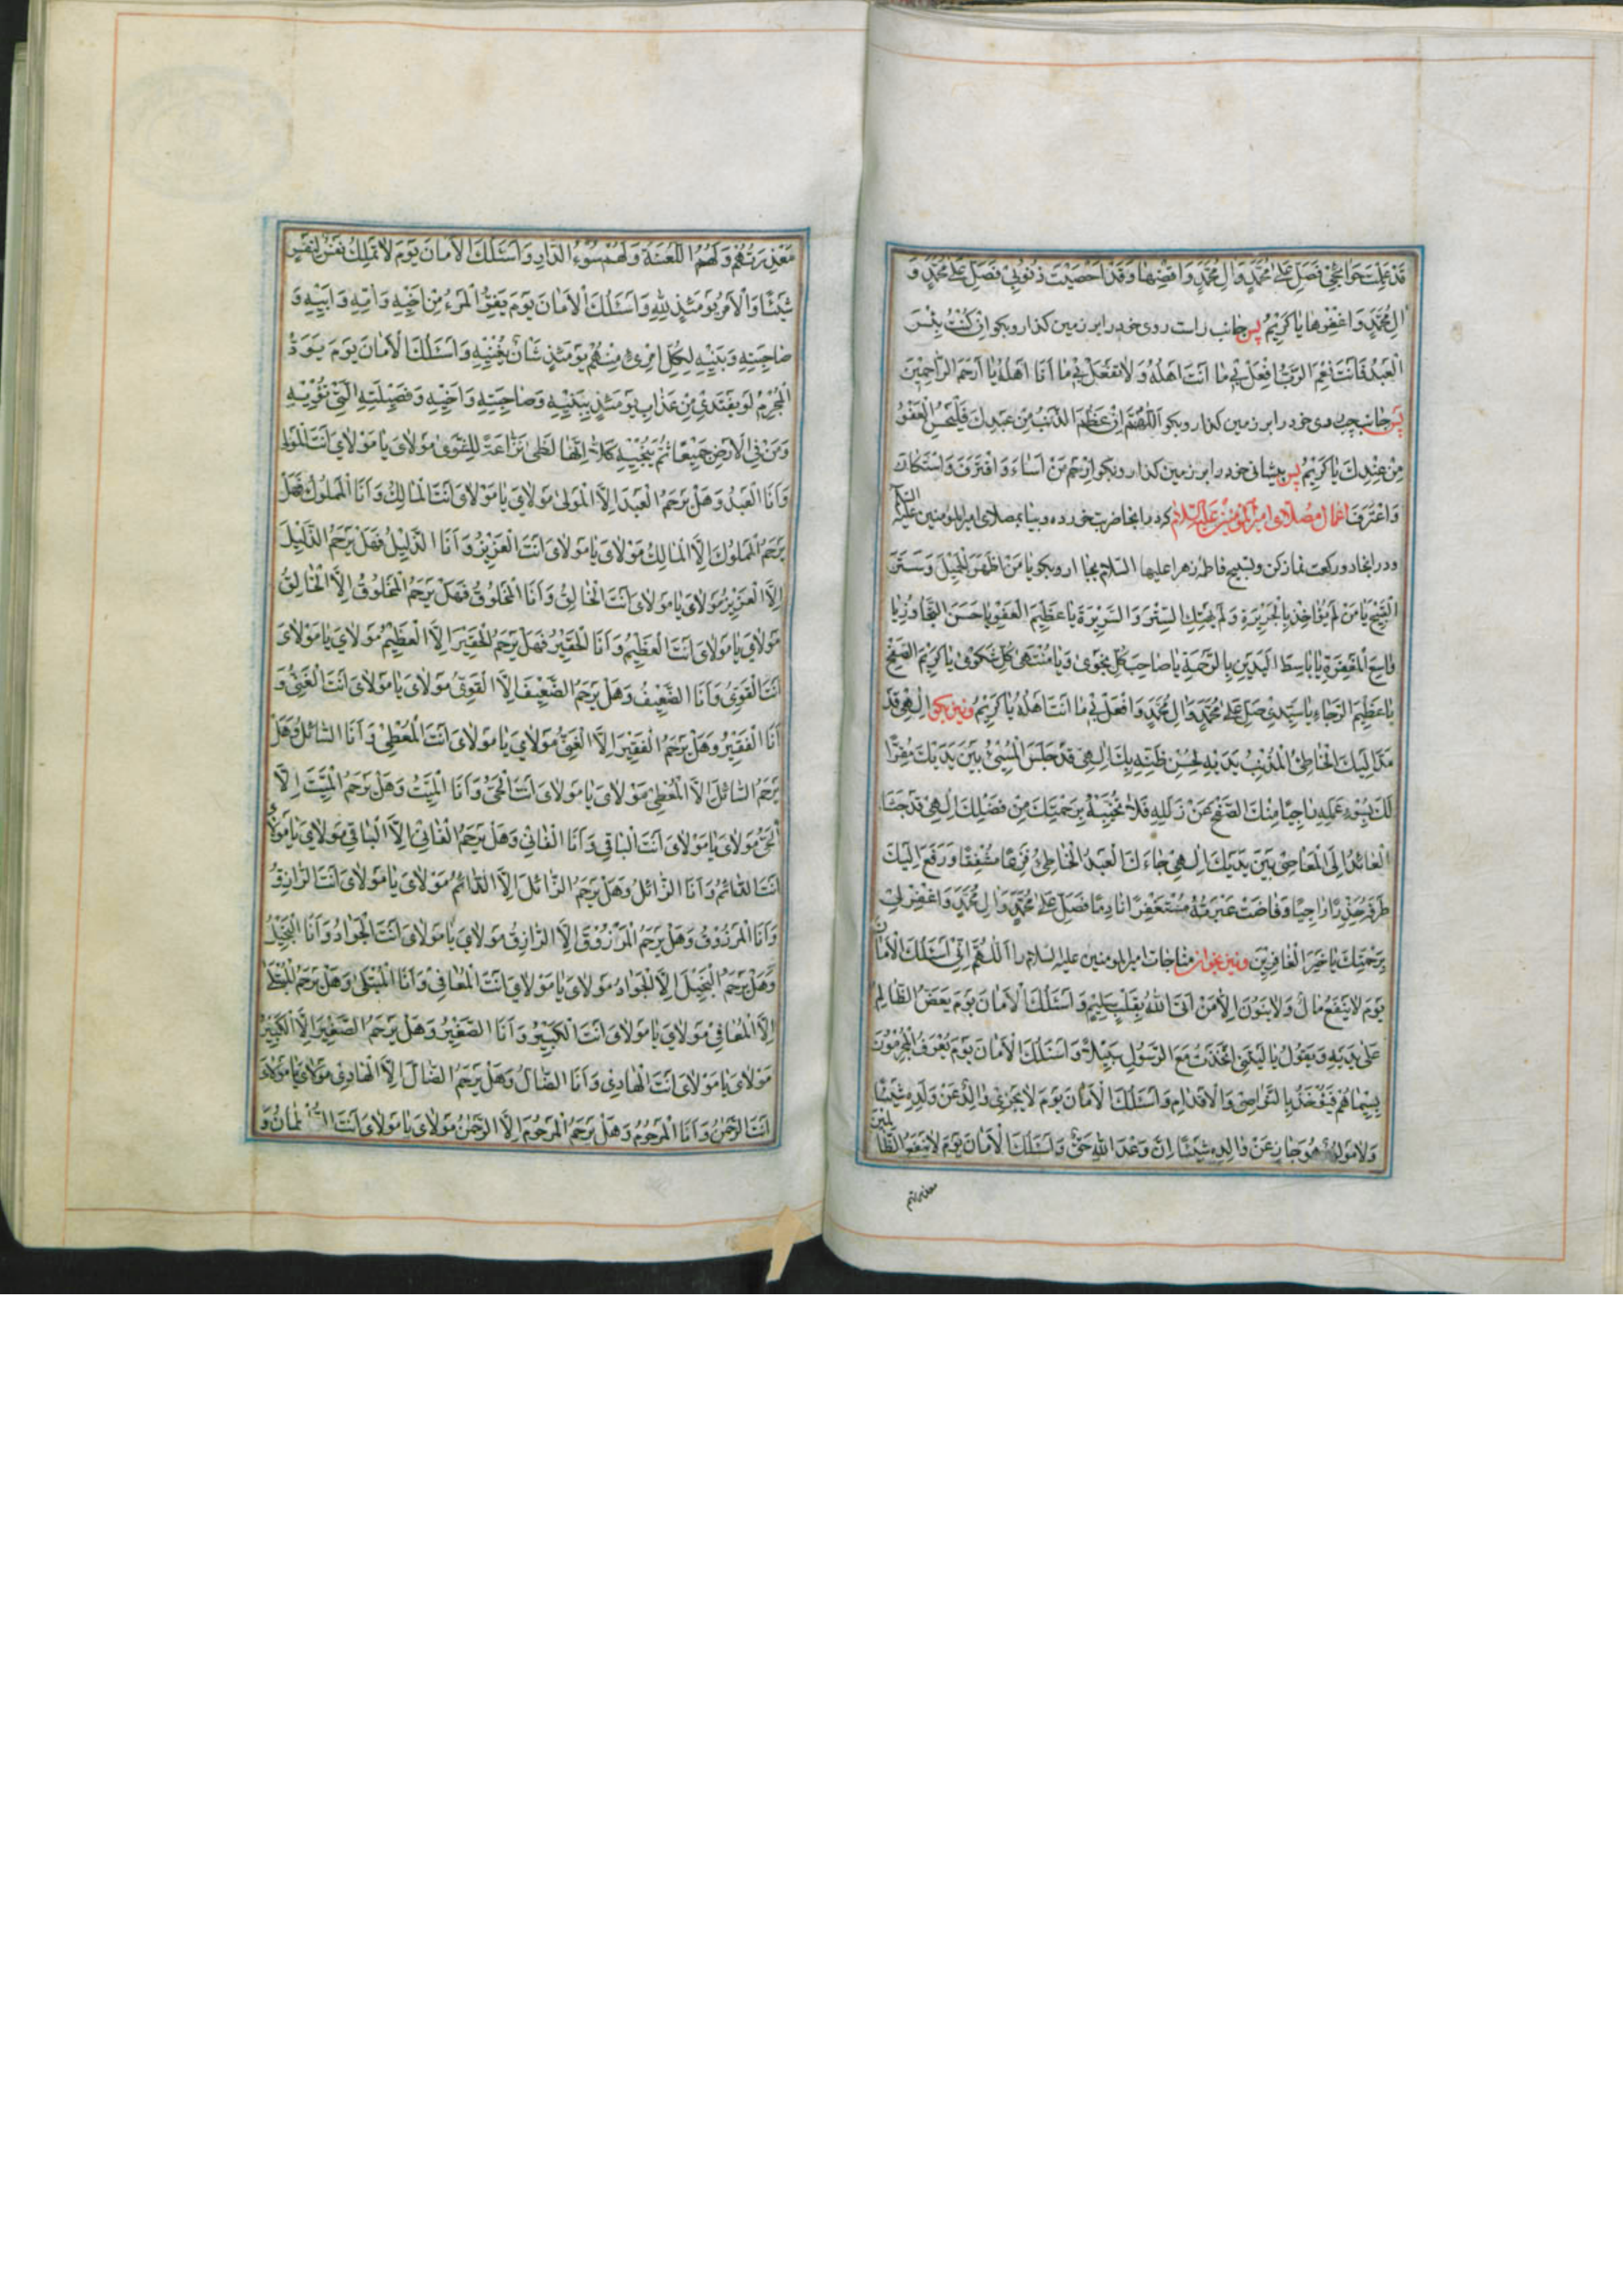 قَدْ عَلِمْتَ حَوَائِجِي فَصَلِّ عَلىٰ مُحَمَّدٍ وَاٰلِ مُحَمَّدٍ وَاقْضِهٰا وَقَدْ اَحْصَيْتَ ذُنُوبِي فَصَلِّ عَلىٰ مُحَمَّدٍ وَ
اٰلِ مُحَمَّدٍ وَاغْفِرْهٰا يٰا كَرِيْمُ پس جانب راست روى خود را بر زمين كذار وبكو اِنْ كُنْتُ بِئْسَ
الْعَبْدُ فَاَنْتَ نِعْمَ الرَّبُّ افْعَلْ بِي مٰا اَنْتَ اَهْلُهُ وَلاٰ تَفْعَلْ بِي مٰا اَنَا اَهْلُهُ يٰا اَرْحَمَ الرّٰاحِمِيْنَ
پس جانب چپ روى خود را بر زمين كذار وبكو اَللّٰهُمَّ اِنْ عَظُمَ الذَّنْبُ مِنْ عَبْدِكَ فَلْيَحْسُنِ الْعَفْوُ
مِنْ عِنْدِكَ يٰا كَرِيْمُ پس پيشانى خود را بر زمين كذار وبكو اِرْحَمْ مَنْ اَسٰاءَ وَاقْتَرَفَ وَاسْتَكٰانَ
وَاعْتَرَفَ اعمال مصلاى امير المؤمنين عليه السلام كه در انجا ضربت خورده و بيا بمصلاى امير المومنين عليه السلام
ودر انجا دو ركعت نماز كن وتسبيح فاطمه زهرا عليها السلام بجا ار وبكو يٰا مَنْ اَظْهَرَ الْجَمِيْلَ وَسَتَرَ
الْقَبِيْحَ يٰا مَنْ لَمْ يُؤٰاخِذْ بِالْجَرِيْرَةِ وَلَمْ يَهْتِكِ السِّتْرَ وَالسَّرِيْرَةَ يٰا عَظِيْمَ الْعَفْوِ يٰا حَسَنَ التَّجٰاوُزِ يٰا
وٰاسِعَ الْمَغْفِرَةِ يٰا بٰاسِطَ الْيَدَيْنِ بِالرَّحْمَةِ يٰا صٰاحِبَ كُلِّ نَجْوىٰ وَيٰا مُنْتَهىٰ كُلِّ شَكْوىٰ يٰا كَرِيْمَ الصَّفْحِ
يٰا عَظِيْمَ الرَّجٰاءِ يٰا سَيِّدِي صَلِّ عَلىٰ مُحَمَّدٍ وَاٰلِ مُحَمَّدٍ وَافْعَلْ بِي مٰا اَنْتَ اَهْلُهُ يٰا كَرِيْمُ ونيز بكو اِلٰهِي قَدْ
مَدَّ اِلَيْكَ الْخٰاطِئُ الْمُذْنِبُ يَدَيْهِ لِحُسْنِ ظَنِّهِ بِكَ اِلٰهِي قَدْ جَلَسَ الْمُسِيْئُ بَيْنَ يَدَيْكَ مُقِرًّا
لَكَ بِسُوْءِ عَمَلِهِ رٰاجِيًا مِنْكَ الصَّفْحَ عَنْ زَلَلِهِ فَلاٰ تُخَيِّبْهُ بِرَحْمَتِكَ مِنْ فَضْلِكَ اِلٰهِي قَدْ جَثٰا
الْعٰائِدُ اِلَى الْمَعٰاصِي بَيْنَ يَدَيْكَ اِلٰهِي جٰاءَكَ الْعَبْدُ الْخٰاطِئُ فَزِعًا مُشْفِقًا وَرَفَعَ اِلَيْكَ
طَرْفَهُ حَذِرًا رٰاجِيًا وَفٰاضَتْ عَبْرَتُهُ مُسْتَغْفِرًا نٰادِمًا فَصَلِّ عَلىٰ مُحَمَّدٍ وَاٰلِ مُحَمَّدٍ وَاغْفِرْ لِي
بِرَحْمَتِكَ يٰا خَيْرَ الْغٰافِرِيْنَ ونيز بخوان مناجات امير المومنين عليه السلام را اَللّٰهُمَّ اِنِّي اَسْئَلُكَ الْاَمٰانَ
يَوْمَ لاٰ يَنْفَعُ مٰالٌ وَلاٰ بَنُوْنَ اِلاّٰ مَنْ اَتَى اللهَ بِقَلْبٍ سَلِيْمٍ وَاَسْئَلُكَ الْاَمٰانَ يَوْمَ يَعَضُّ الظّٰالِمُ
عَلىٰ يَدَيْهِ وَيَقُوْلُ يٰا لَيْتَنِي اتَّخَذْتُ مَعَ الرَّسُوْلِ سَبِيْلاً وَاَسْئَلُكَ الْاَمٰانَ يَوْمَ يُعْرَفُ الْمُجْرِمُوْنَ
بِسِيْمٰاهُمْ فَيُؤْخَذُ بِالنَّوٰاصِي وَالْاَقْدٰامِ وَاَسْئَلُكَ الْاَمٰانَ يَوْمَ لاٰ يَجْزِي وٰالِدٌ عَنْ وَلَدِهِ شَيْئًا
وَلاٰ مَوْلُوْدٌ هُوَ جٰازٍ عَنْ وٰالِدِهِ شَيْئًا اِنَّ وَعْدَ اللهِ حَقٌّ وَاَسْئَلُكَ الْاَمٰانَ يَوْمَ لاٰ يَنْفَعُ الظّٰالِمِيْنَ
معذرتهم
مَعْذِرَتُهُمْ وَلَهُمُ اللَّعْنَةُ وَلَهُمْ سُوْءُ الدّٰارِ وَاَسْئَلُكَ الْاَمٰانَ يَوْمَ لاٰ تَمْلِكُ نَفْسٌ لِنَفْسٍ
شَيْئًا وَالْاَمْرُ يَوْمَئِذٍ لِلّٰهِ وَاَسْئَلُكَ الْاَمٰانَ يَوْمَ يَفِرُّ الْمَرْءُ مِنْ اَخِيْهِ وَاُمِّهِ وَاَبِيْهِ وَ
صٰاحِبَتِهِ وَبَنِيْهِ لِكُلِّ امْرِئٍ مِنْهُمْ يَوْمَئِذٍ شَأْنٌ يُغْنِيْهِ وَاَسْئَلُكَ الْاَمٰانَ يَوْمَ يَوَدُّ
الْمُجْرِمُ لَوْ يَفْتَدِي مِنْ عَذٰابِ يَوْمَئِذٍ بِبَنِيْهِ وَصٰاحِبَتِهِ وَاَخِيْهِ وَفَصِيْلَتِهِ الَّتِي تُؤْوِيْهِ
وَمَنْ فِي الْاَرْضِ جَمِيْعًا ثُمَّ يُنْجِيْهِ كَلاّٰ اِنَّهٰا لَظىٰ نَزّٰاعَةً لِلشَّوىٰ مَوْلاٰيَ يٰا مَوْلاٰيَ اَنْتَ الْمَوْلىٰ
وَاَنَا الْعَبْدُ وَهَلْ يَرْحَمُ الْعَبْدَ اِلاَّ الْمَوْلىٰ مَوْلاٰيَ يٰا مَوْلاٰيَ اَنْتَ الْمٰالِكُ وَاَنَا الْمَمْلُوْكُ فَهَلْ
يَرْحَمُ الْمَمْلُوْكَ اِلاَّ الْمٰالِكُ مَوْلاٰيَ يٰا مَوْلاٰيَ اَنْتَ الْعَزِيْزُ وَاَنَا الذَّلِيْلُ فَهَلْ يَرْحَمُ الذَّلِيْلَ
اِلاَّ الْعَزِيْزُ مَوْلاٰيَ يٰا مَوْلاٰيَ اَنْتَ الْخٰالِقُ وَاَنَا الْمَخْلُوْقُ فَهَلْ يَرْحَمُ الْمَخْلُوْقَ اِلاَّ الْخٰالِقُ
مَوْلاٰيَ يٰا مَوْلاٰيَ اَنْتَ الْعَظِيْمُ وَاَنَا الْحَقِيْرُ فَهَلْ يَرْحَمُ الْحَقِيْرَ اِلاَّ الْعَظِيْمُ مَوْلاٰيَ يٰا مَوْلاٰيَ
اَنْتَ الْقَوِيُّ وَاَنَا الضَّعِيْفُ وَهَلْ يَرْحَمُ الضَّعِيْفَ اِلاَّ الْقَوِيُّ مَوْلاٰيَ يٰا مَوْلاٰيَ اَنْتَ الْغَنِيُّ وَ
اَنَا الْفَقِيْرُ وَهَلْ يَرْحَمُ الْفَقِيْرَ اِلاَّ الْغَنِيُّ مَوْلاٰيَ يٰا مَوْلاٰيَ اَنْتَ الْمُعْطِي وَاَنَا السّٰائِلُ وَهَلْ
يَرْحَمُ السّٰائِلَ اِلاَّ الْمُعْطِي مَوْلاٰيَ يٰا مَوْلاٰيَ اَنْتَ الْحَيُّ وَاَنَا الْمَيِّتُ وَهَلْ يَرْحَمُ الْمَيِّتَ اِلاَّ
الْحَيُّ مَوْلاٰيَ يٰا مَوْلاٰيَ اَنْتَ الْبٰاقِي وَاَنَا الْفٰانِي وَهَلْ يَرْحَمُ الْفٰانِيَ اِلاَّ الْبٰاقِي مَوْلاٰيَ يٰا مَوْلاٰيَ
اَنْتَ الدّٰائِمُ وَاَنَا الزّٰائِلُ وَهَلْ يَرْحَمُ الزّٰائِلَ اِلاَّ الدّٰائِمُ مَوْلاٰيَ يٰا مَوْلاٰيَ اَنْتَ الرّٰازِقُ
وَاَنَا الْمَرْزُوْقُ وَهَلْ يَرْحَمُ الْمَرْزُوْقَ اِلاَّ الرّٰازِقُ مَوْلاٰيَ يٰا مَوْلاٰيَ اَنْتَ الْجَوٰادُ وَاَنَا الْبَخِيْلُ
وَهَلْ يَرْحَمُ الْبَخِيْلَ اِلاَّ الْجَوٰادُ مَوْلاٰيَ يٰا مَوْلاٰيَ اَنْتَ الْمُعٰافِي وَاَنَا الْمُبْتَلىٰ وَهَلْ يَرْحَمُ الْمُبْتَلىٰ
اِلاَّ الْمُعٰافِي مَوْلاٰيَ يٰا مَوْلاٰيَ اَنْتَ الْكَبِيْرُ وَاَنَا الصَّغِيْرُ وَهَلْ يَرْحَمُ الصَّغِيْرَ اِلاَّ الْكَبِيْرُ
مَوْلاٰيَ يٰا مَوْلاٰيَ اَنْتَ الْهٰادِي وَاَنَا الضّٰالُّ وَهَلْ يَرْحَمُ الضّٰالَّ اِلاَّ الْهٰادِي مَوْلاٰيَ يٰا مَوْلاٰيَ
اَنْتَ الرَّحْمٰنُ وَاَنَا الْمَرْحُوْمُ وَهَلْ يَرْحَمُ الْمَرْحُوْمَ اِلاَّ الرَّحْمٰنُ مَوْلاٰيَ يٰا مَوْلاٰيَ اَنْتَ السُّلْطٰانُ وَ